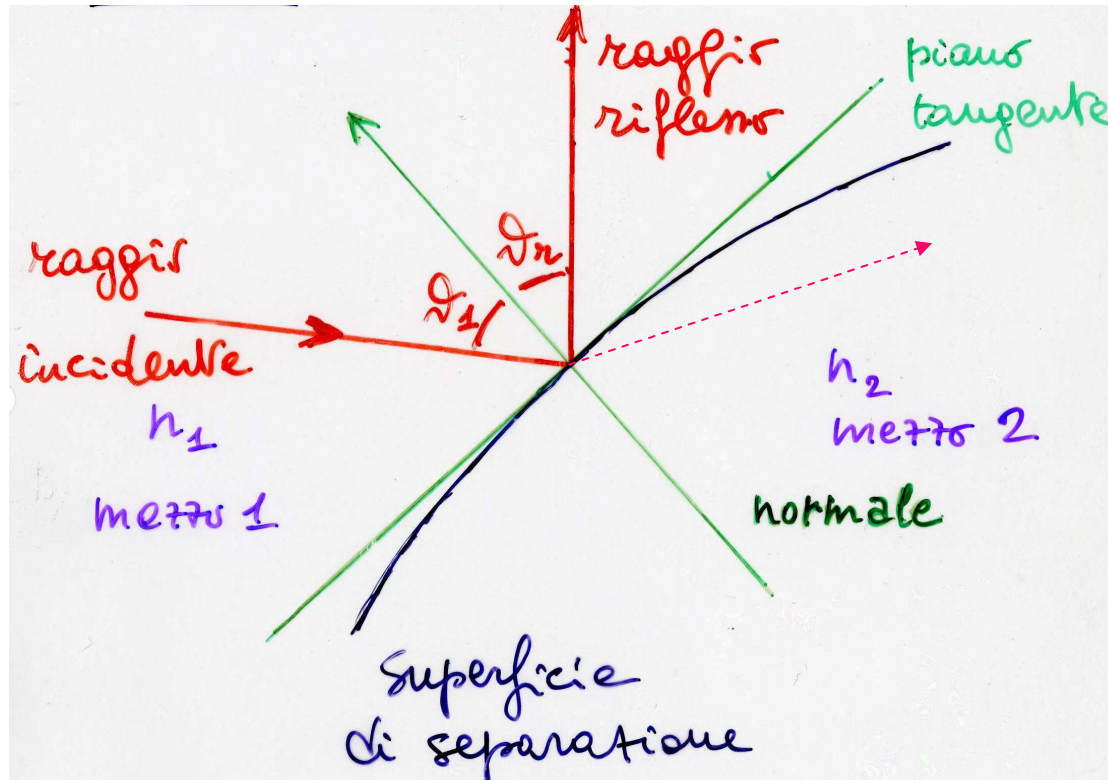 raggio
riflesso
piano
tangente
ϑr
raggio
ϑ1
incidente
n2
n1
mezzo 2
mezzo 1
normale
superficie
di separazione